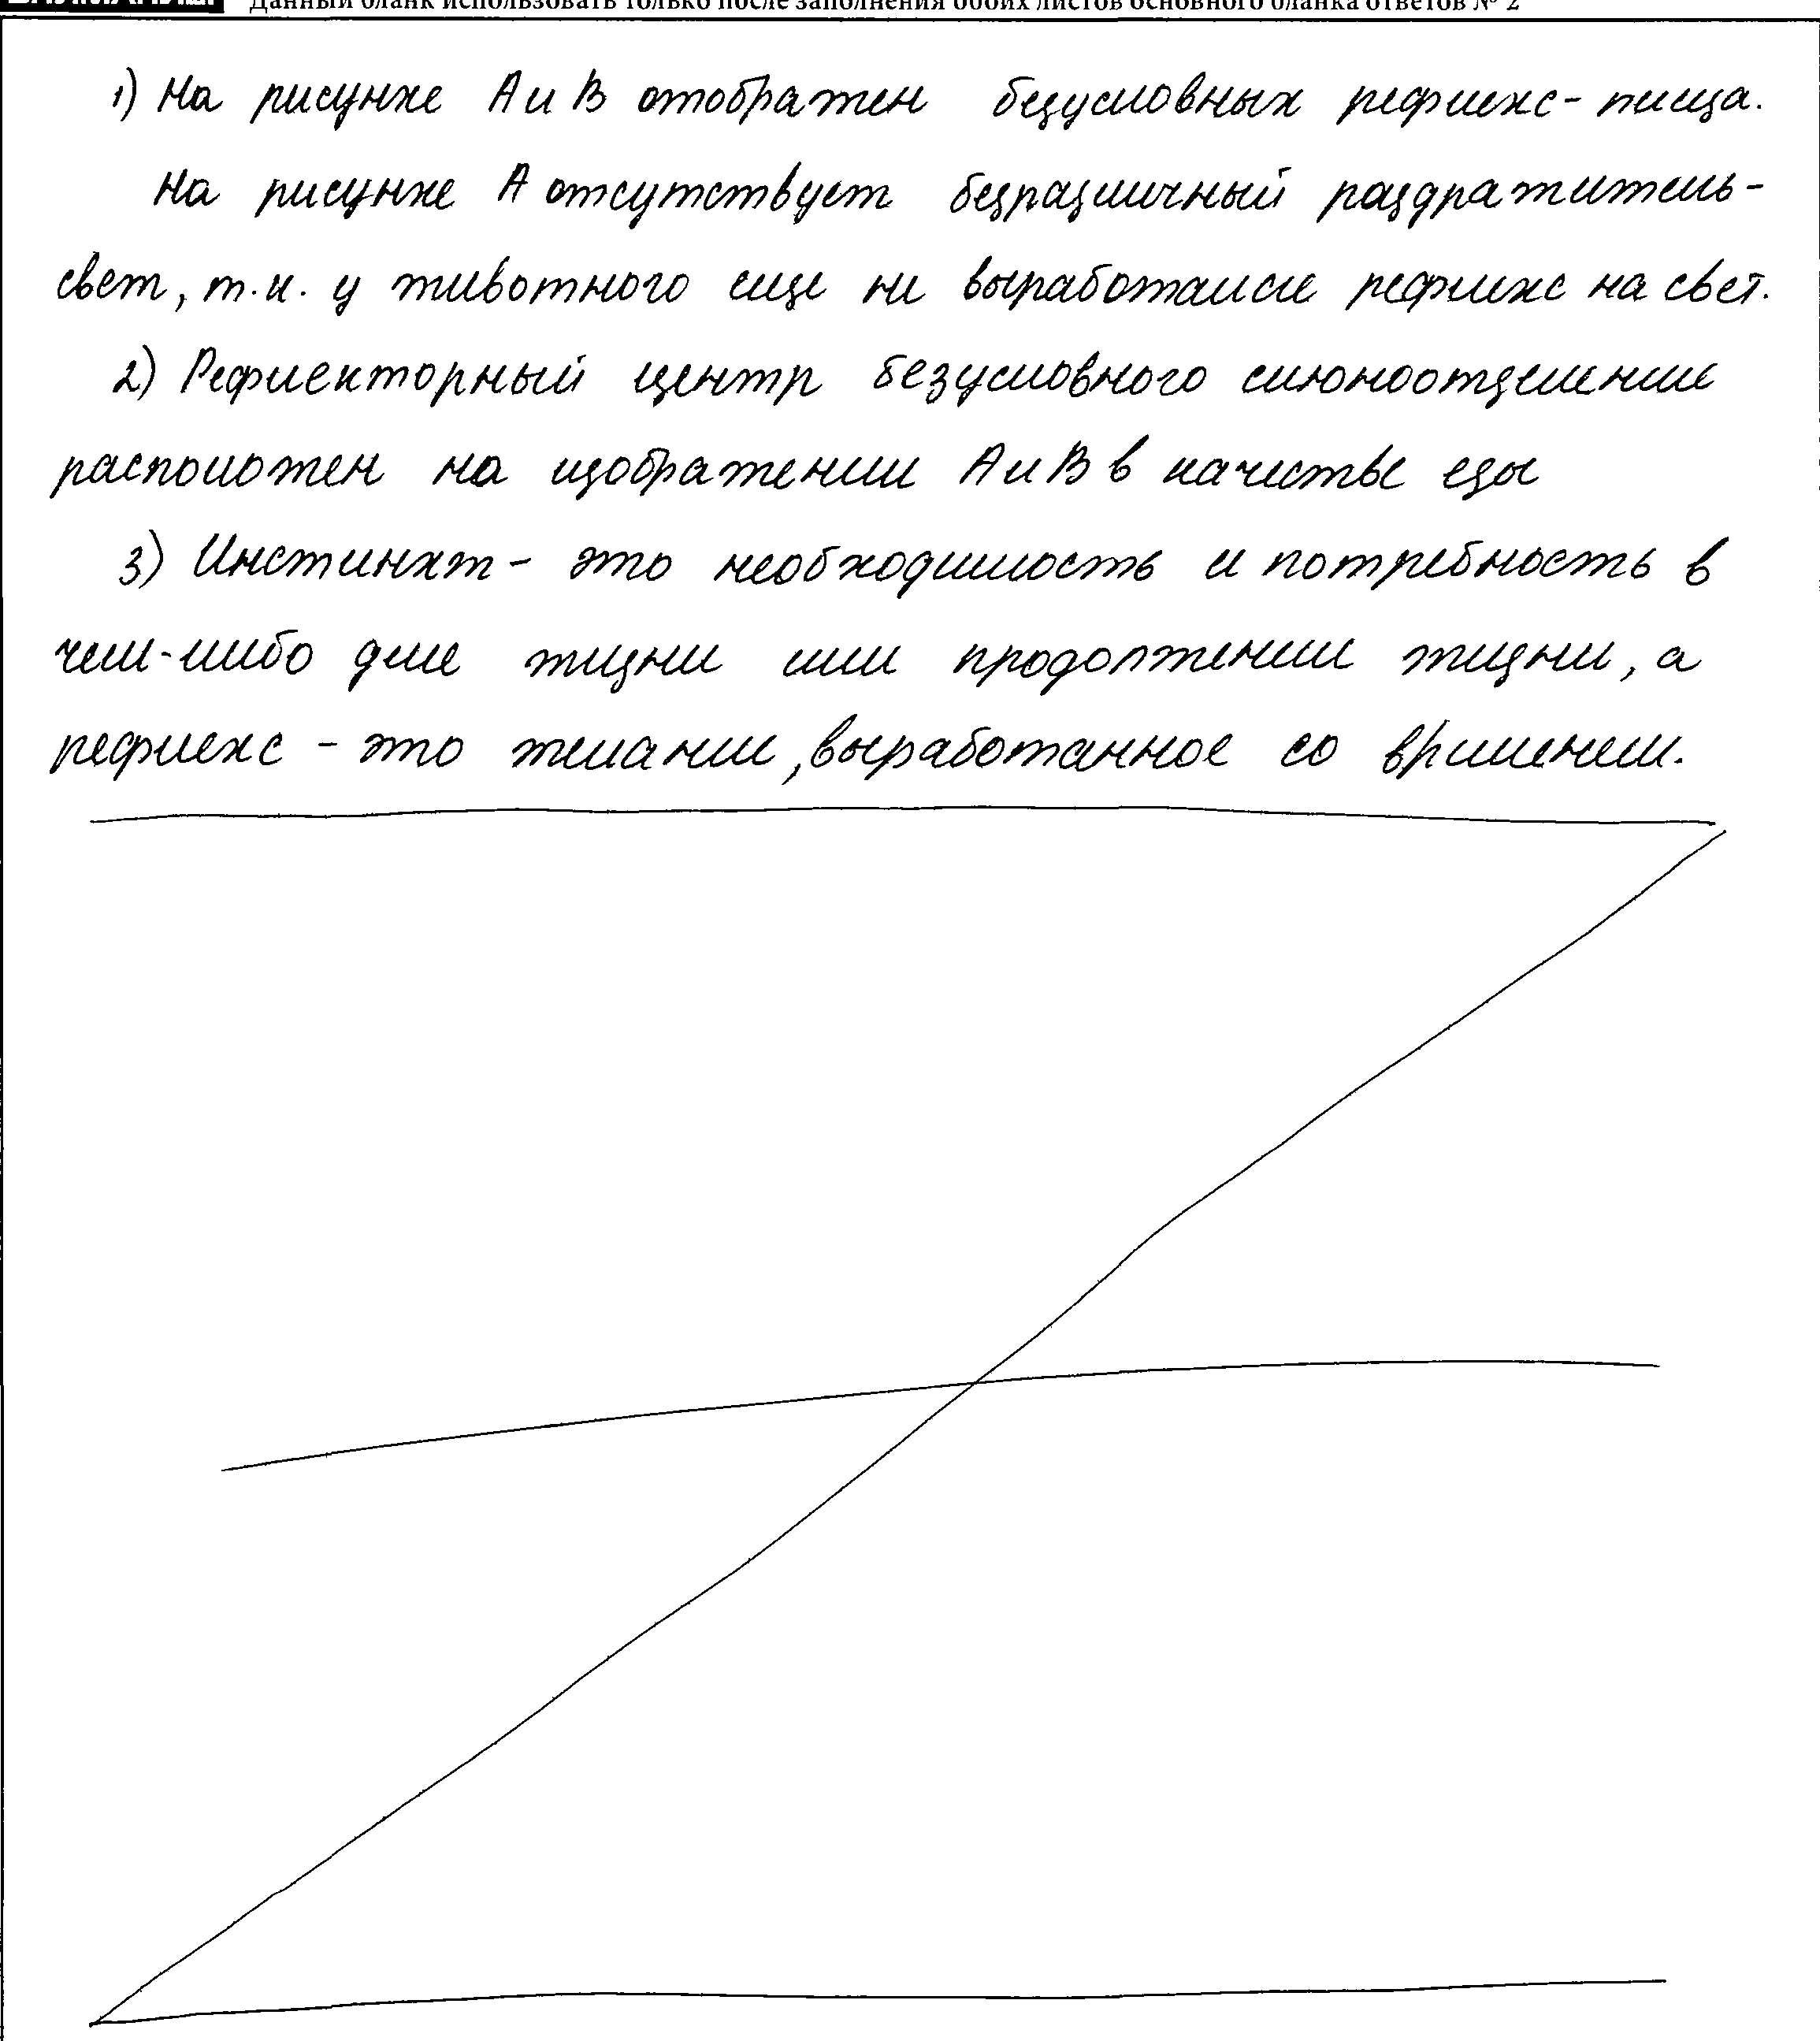 Данный бланк использовать только после заполнения обоих листов основного бланка ответов № 2
1) На рисунке А и В отображен безусловных рефлекс - пища.
На рисунке А отсутствует безразличный раздражитель -
свет, т.к. у животного еще не выработался рефлекс на свет.
2) Рефлекторный центр безусловного слюноотделения
расположен на изображении А и В в качестве еды
3) Инстинкт - это необходимость и потребность в
чем-либо для жизни или продолжении жизни, а
рефлекс - это желание, выработанное со временем.